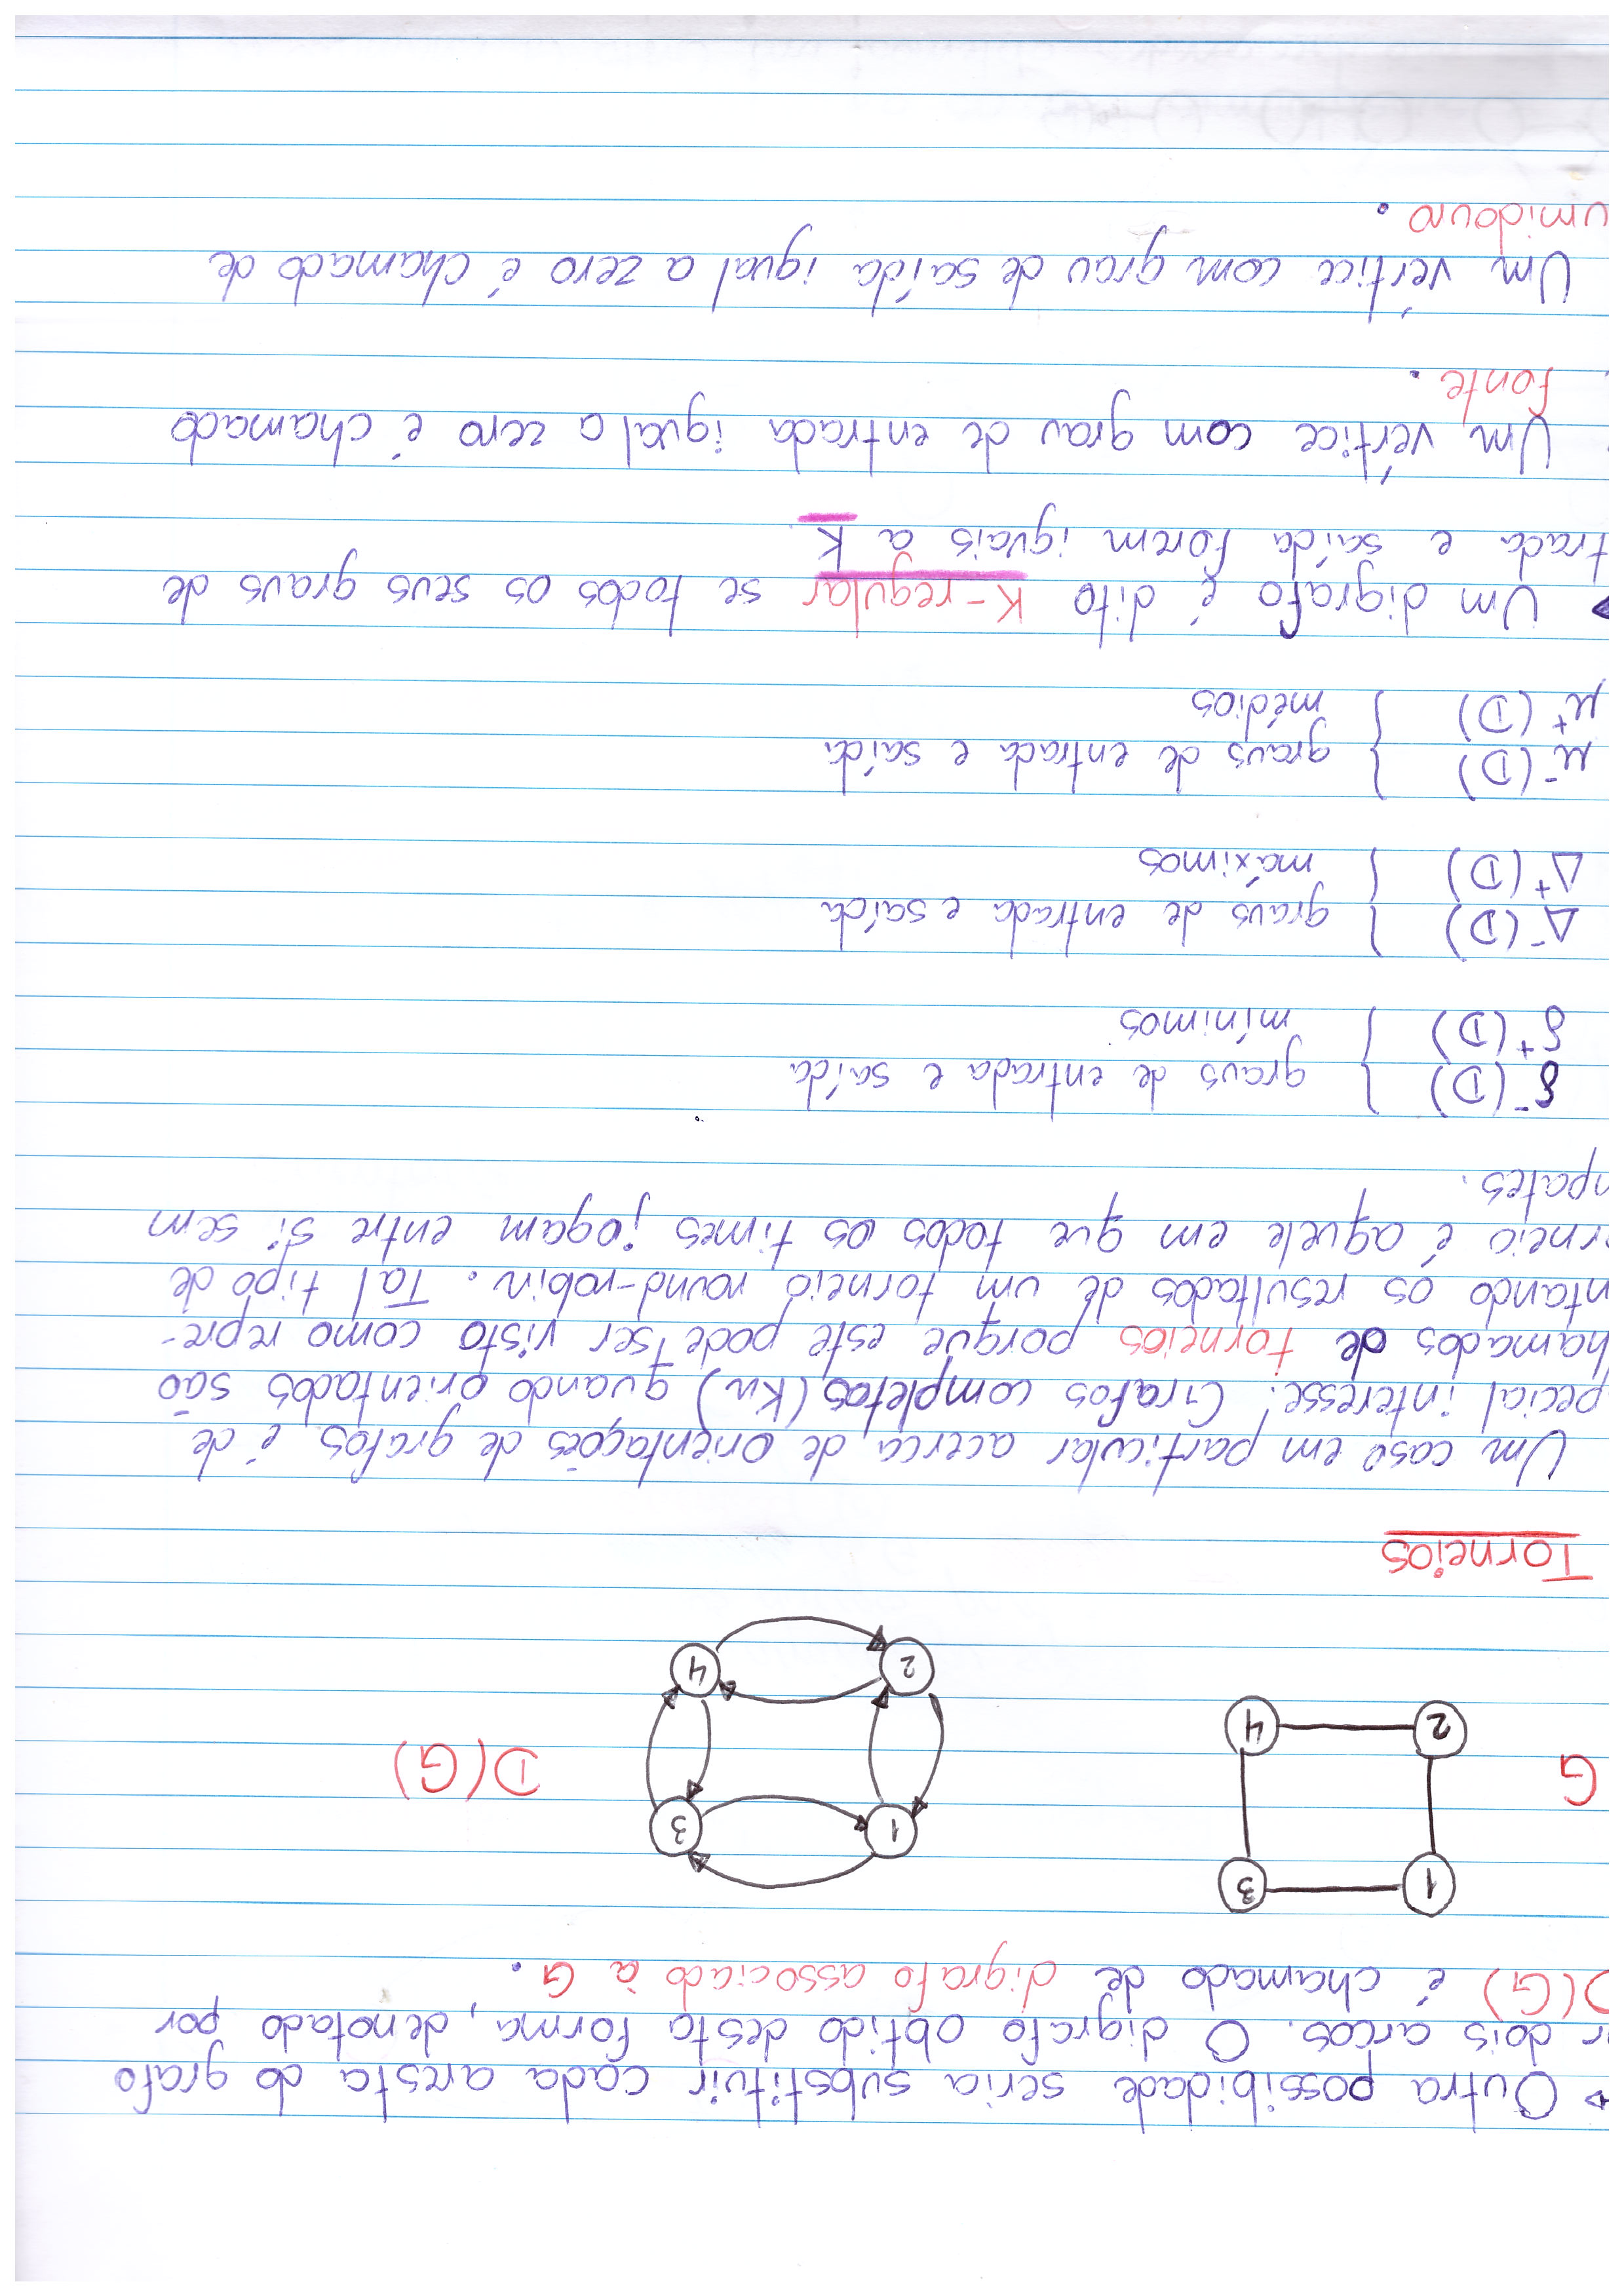 Outra possibidade seria substituir cada aresta do grafo
r dois arcos. O digrafo obtido desta forma, denotado por
D(G) é chamado de digrafo associado à G.
1 3
1 3
G D(G)
2 4
2 4
Torneios
Um caso em particular acerca de orientações de grafos é de
pecial interesse! Grafos completos (Kn) quando orientados são
hamados de torneios porque este pode ser visto como repre-
ntando os resultados de um torneio round-robin. Tal tipo de
rneio é aquele em que todos os times jogam entre si sem
mpates.
δ⁻(D) } graus de entrada e saída
δ⁺(D) mínimos
Δ⁻(D) } graus de entrada e saída
Δ⁺(D) máximos
μ⁻(D) } graus de entrada e saída
μ⁺(D) médios
Um digrafo é dito K-regular se todos os seus graus de
trada e saída forem iguais a K.
Um vértice com grau de entrada igual a zero é chamado
fonte.
Um vértice com grau de saída igual a zero é chamado de
umidouro.